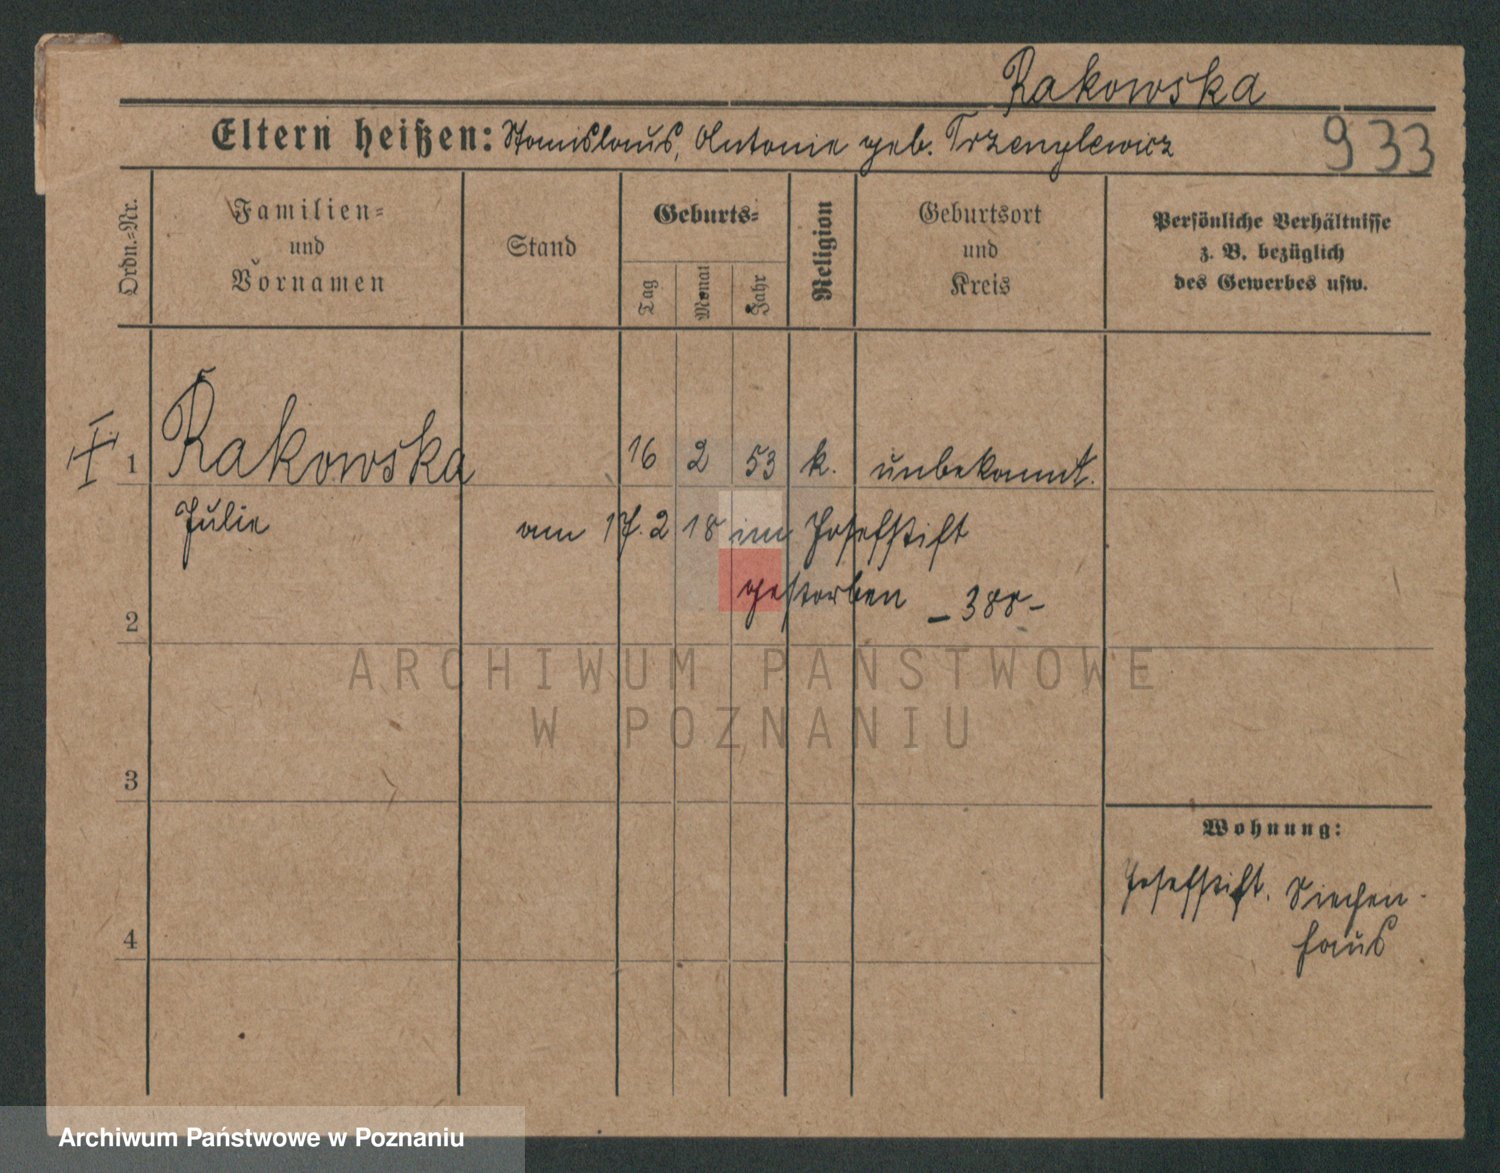 Rakowska
Eltern heißen: Stanislaus, Antonie geb.
933
Ordn.=Nr.
Familien=
und
Vornamen
Stand
Geburts=
Tag
Monat
Jahr
Religion
Geburtsort
und
Kreis
Persönliche Verhältnisse
z. B. bezüglich
des Gewerbes usw.
1
Rakowska
16
2
53
k.
unbekannt.
Julie
am 17. 2 18 im Josefstift
gestorben – 388 –
2
ARCHIWUM PAŃSTWOWE
W POZNANIU
3
Wohnung:
Josefstift. Siechen-
haus
4
Archiwum Państwowe w Poznaniu